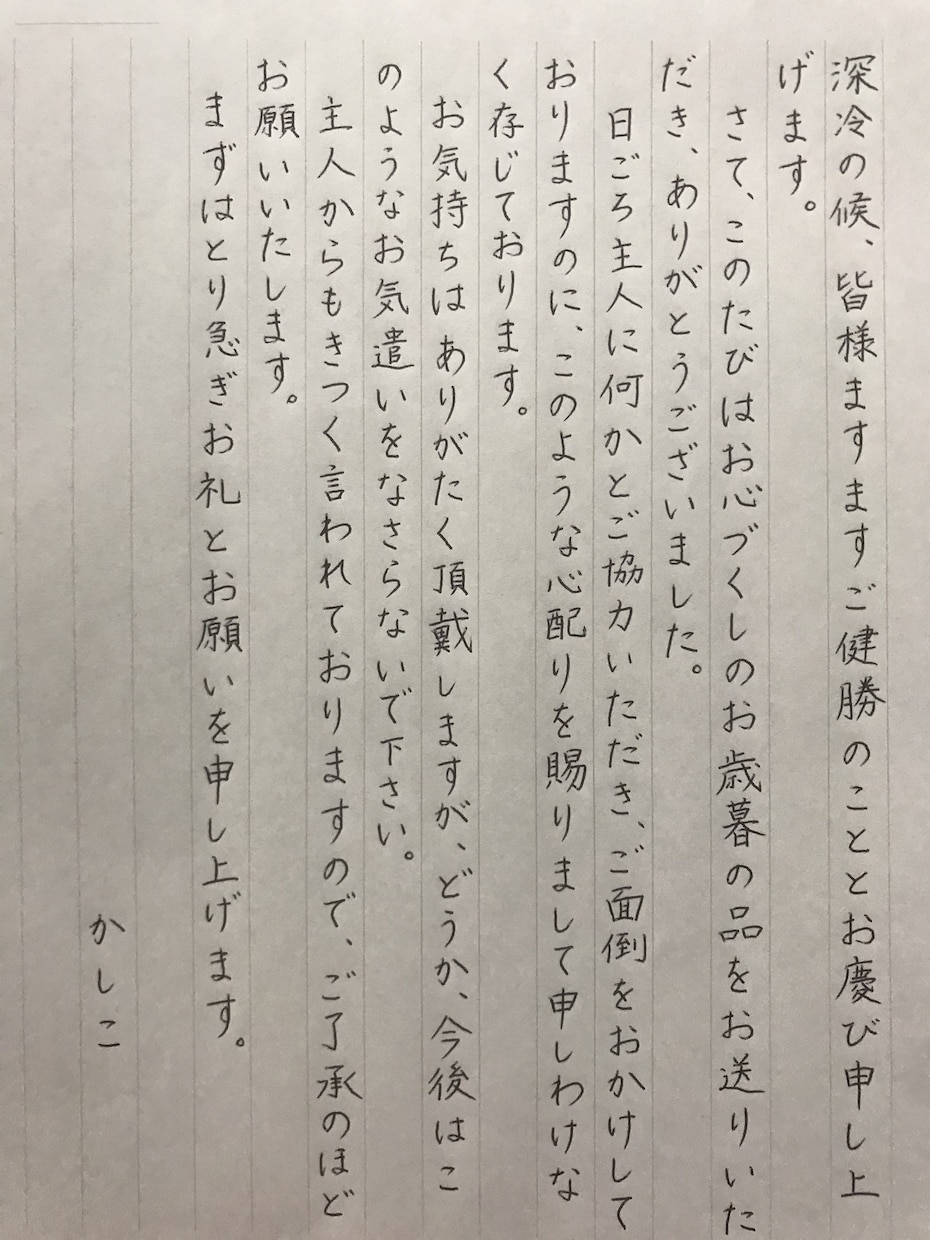 深冷の候、皆様ますますご健勝のこととお慶び申し上
げます。
さて、このたびはお心づくしのお歳暮の品をお送りいた
だき、ありがとうございました。
日ごろ主人に何かとご協力いただき、ご面倒をおかけして
おりますのに、このような心配りを賜りまして申しわけな
く存じております。
お気持ちはありがたく頂戴しますが、どうか、今後はこ
のようなお気遣いをなさらないで下さい。
主人からもきつく言われておりますので、ご了承のほど
お願いいたします。
まずはとり急ぎお礼とお願いを申し上げます。
かしこ